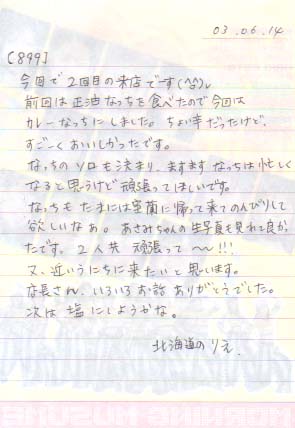 03.06.14
[899]
今回で2回目の来店でーす(^^)v
前回は正油なっちを食べたので今回は
カレーなっちにしました。ちょい辛だったけど、
すごーくおいしかったです。
なっちのソロも決まり、ますますなっちは忙しく
なると思うけど頑張ってほしいです。
なっちもたまには室蘭に帰って来てのんびりして
欲しいなぁ。あさみちゃんの生写真も見れて良か
ったです。2人共 頑張って〜!!!
又、近いうちに来たいと思います。
店長さん、いろいろお話ありがとうでした。
次は塩にしようかな。
北海道のりえ
MORNING MUSUME